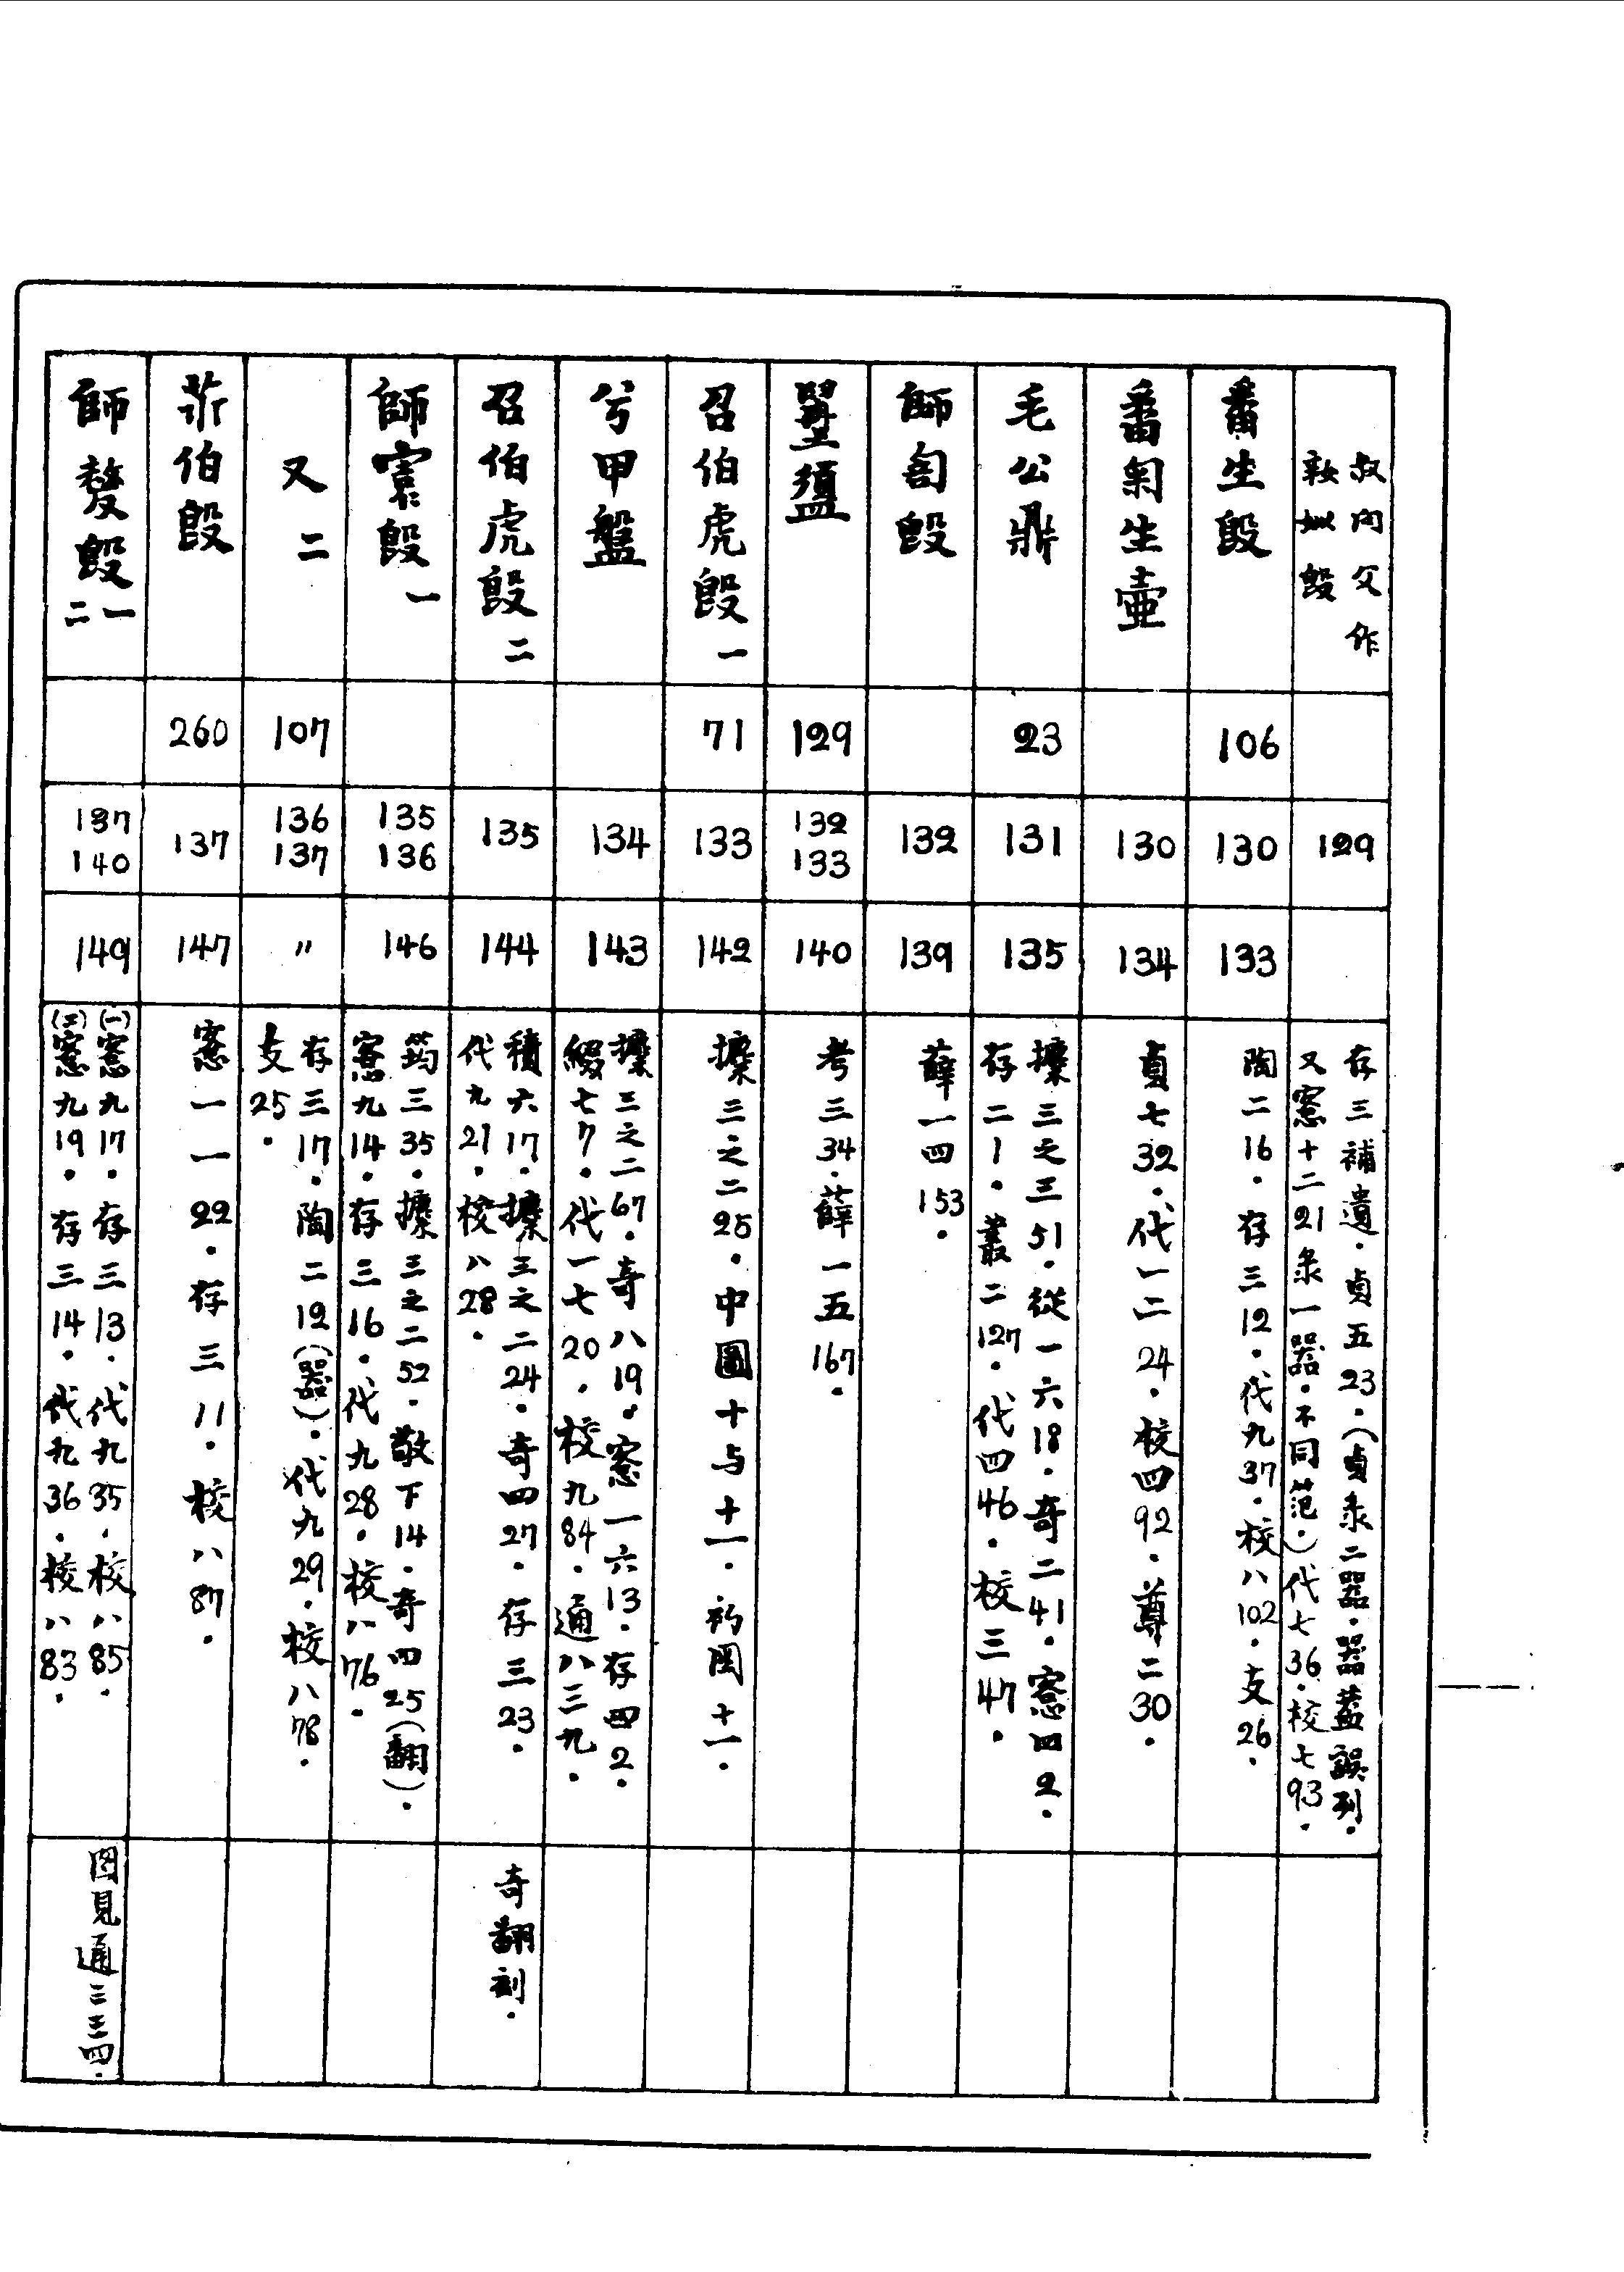 叔向父作
㛸姒𣪘
129
存三補遺．貞五23．（貞彔二器．器蓋誤列．
又窓十二21彔一器．不同范．）代七36．校七93．
番生𣪘
106
130
133
陶二16．存三12．代九37．校八102．支26．
番匊生壷
130
134
貞七32．代一二24．校四92．尊二30．
毛公鼎
23
131
135
攈三之三51．從一六18．奇二41．窓四2．
存二1．叢二127．代四46．校三47．
師訇𣪘
132
139
薛一四153．
盨
129
132
133
140
考三34．薛一五167．
召伯虎𣪘一
71
133
142
攈三之二25．中圖十与十一．
圂十一．
兮甲盤
134
143
攈三之二67．奇八19．窓一六13．存四2．
綴七7．代一七20．校九84．通八三九．
召伯虎𣪘二
135
144
積六17．攈三之二24．奇四27．存三23．
代九21．校八28．
奇翻刻．
師㝨𣪘一
135
136
146
筠三35．攈三之二52．敬下14．奇四25（翻）．
窓九14．存三16．代九28．校八76．
又二
107
136
137
〃
存三17．陶二12（器）．代九29．校八78．
支25．
伯𣪘
260
137
147
窓一一22．存三11．校八87．
師𠭰𣪘一
二
137
140
149
(一)窓九17．存三13．代九35．校八85．
(二)窓九19．存三14．代九36．校八83．
图見通三三四．